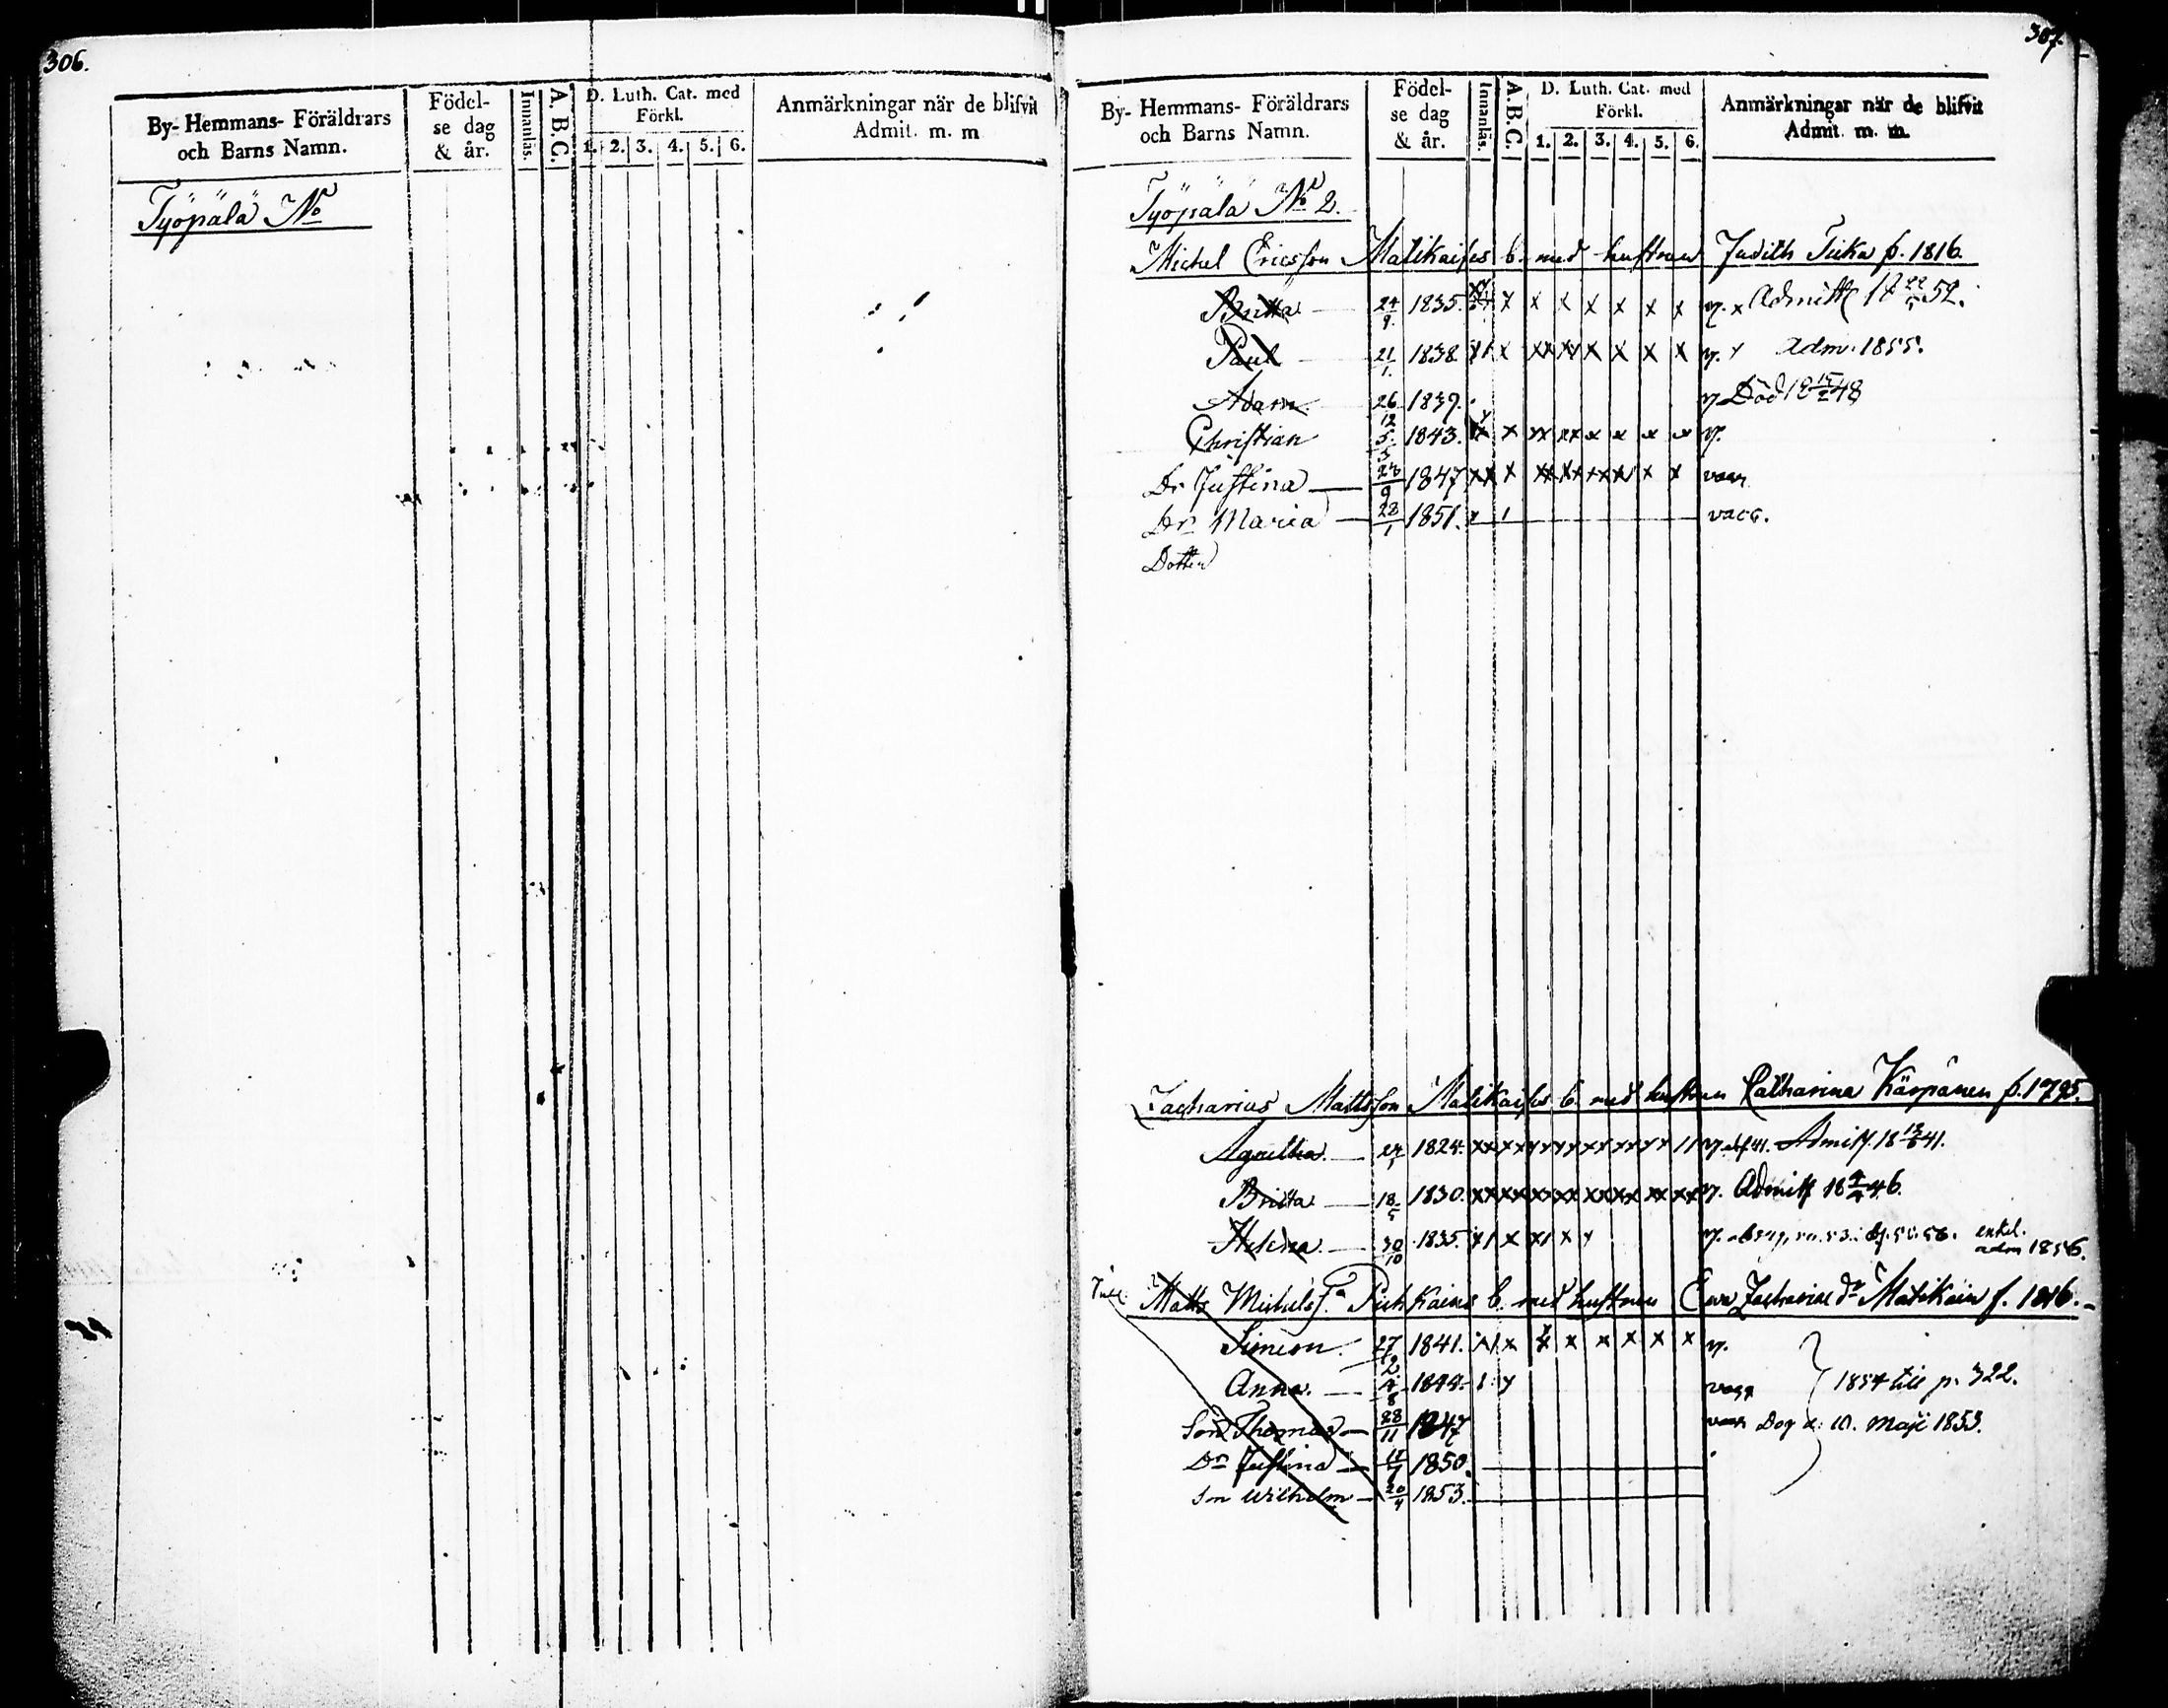 306.
By- Hemmans- Föräldrars och Barns Namn.
Födel- se dag & år.
Innanläs.
A.B.C.
D. Luth. Cat. med Förkl.
1. 2. 3. 4. 5. 6.
Anmärkningar när de blifvit Admit. m. m
Työpälä No
307.
By- Hemmans- Föräldrars och Barns Namn.
Födel- se dag & år.
Innanläs.
A.B.C.
D. Luth. Cat. med Förkl.
1. 2. 3. 4. 5. 6.
Anmärkningar när de blifvit Admit. m. m.
Työpälä No 2.
Michel Ericsson Matikaises b. med hustrun Judith Tiika f. 1816.
Britta 24/9. 1835. x x x x x x x v. x Admitt 18 22/5 52.
Paul 21/1. 1838. x1 x xx xx x x x x v. x adm. 1855.
Adam 26/12 1839. v Död 18 15/2 48
Christian 5/5 1843. x x xx xx x x x x v.
Dr Justina 23/9 1847 xx x xx xx xxx x x vacc
Dr Maria 28/1 1851. x 1 vacc.
Dotter
Zacharias Mattsson Matikaises b. med hustrun Catharina Kärpänen f. 1795.
Agnetha 1824. Admitt. 18 41.
Britta 18/5 1830. v. Admitt 18 46.
Helena 30/10 1835. x1 x x1 x x enkel. adm 1856.
Matts Michelss. b. med hustrun Ewa Zachariae dr Matikain f. 1816.
Simeon. 27/12 1841. x1 x x x x x x x v.
Anna 4/8 1844. 1 vacc 1854 till p. 322.
Son Thomas 28/11 1847 vacc Dog d: 10. Maji 1853.
Dr Justina 1850.
Sn Wilhelm 20/4 1853.